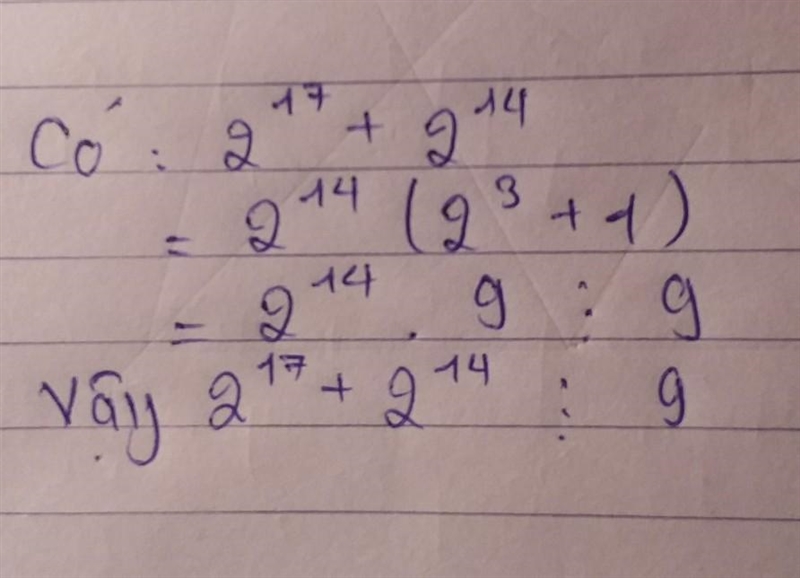 Có : 2¹⁷ + 2¹⁴
= 2¹⁴ (2³ + 1)
= 2¹⁴ . 9 ⋮ 9
Vậy 2¹⁷ + 2¹⁴ ⋮ 9